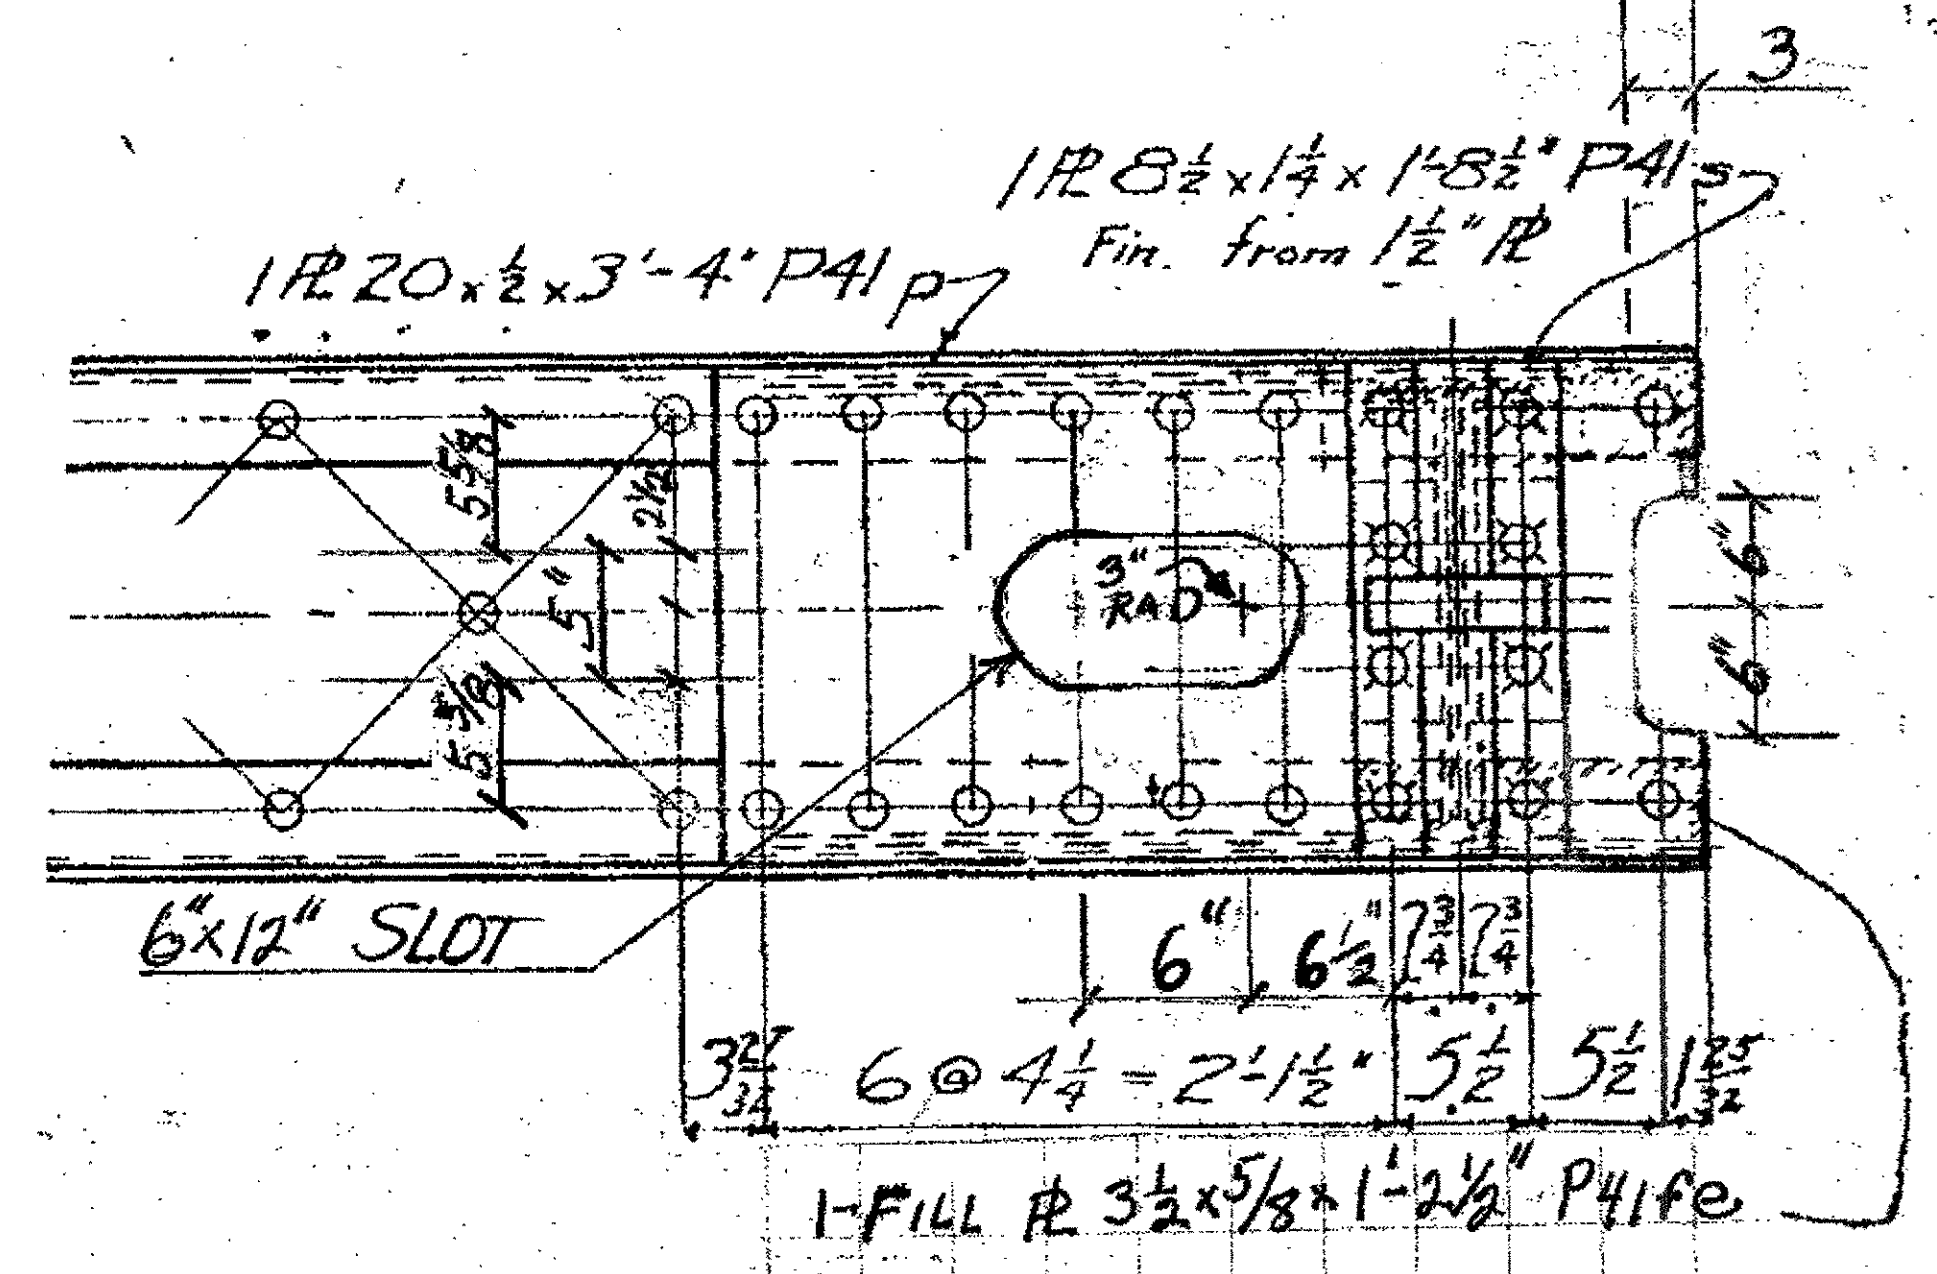 3
1 PL 8 1/2 x 1 1/4 x 1'-8 1/2" P41s
Fin. from 1 1/2" PL
1 PL 20 x 1/2 x 3'-4" P41p
5 5/8
2 1/2
5"
5 5/8
3"
RAD
6"
6"
6"x12" SLOT
6" 6 1/2" 2 3/4 2 3/4
3 27/32 6 @ 4 1/4 = 2'-1 1/2" 5 1/2 5 1/2 1 25/32
1-FILL PL 3 1/2 x 5/8 x 1'-2 1/2" P41fe